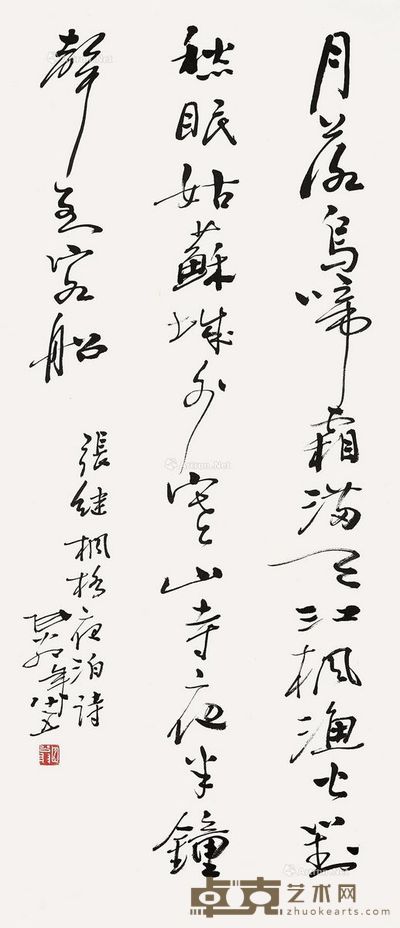 月落烏啼霜滿天江楓漁火對
愁眠姑蘇城外寒山寺夜半鐘
聲到客船
張継楓橋夜泊詩
年
卓克艺术网
zhuokearts.com